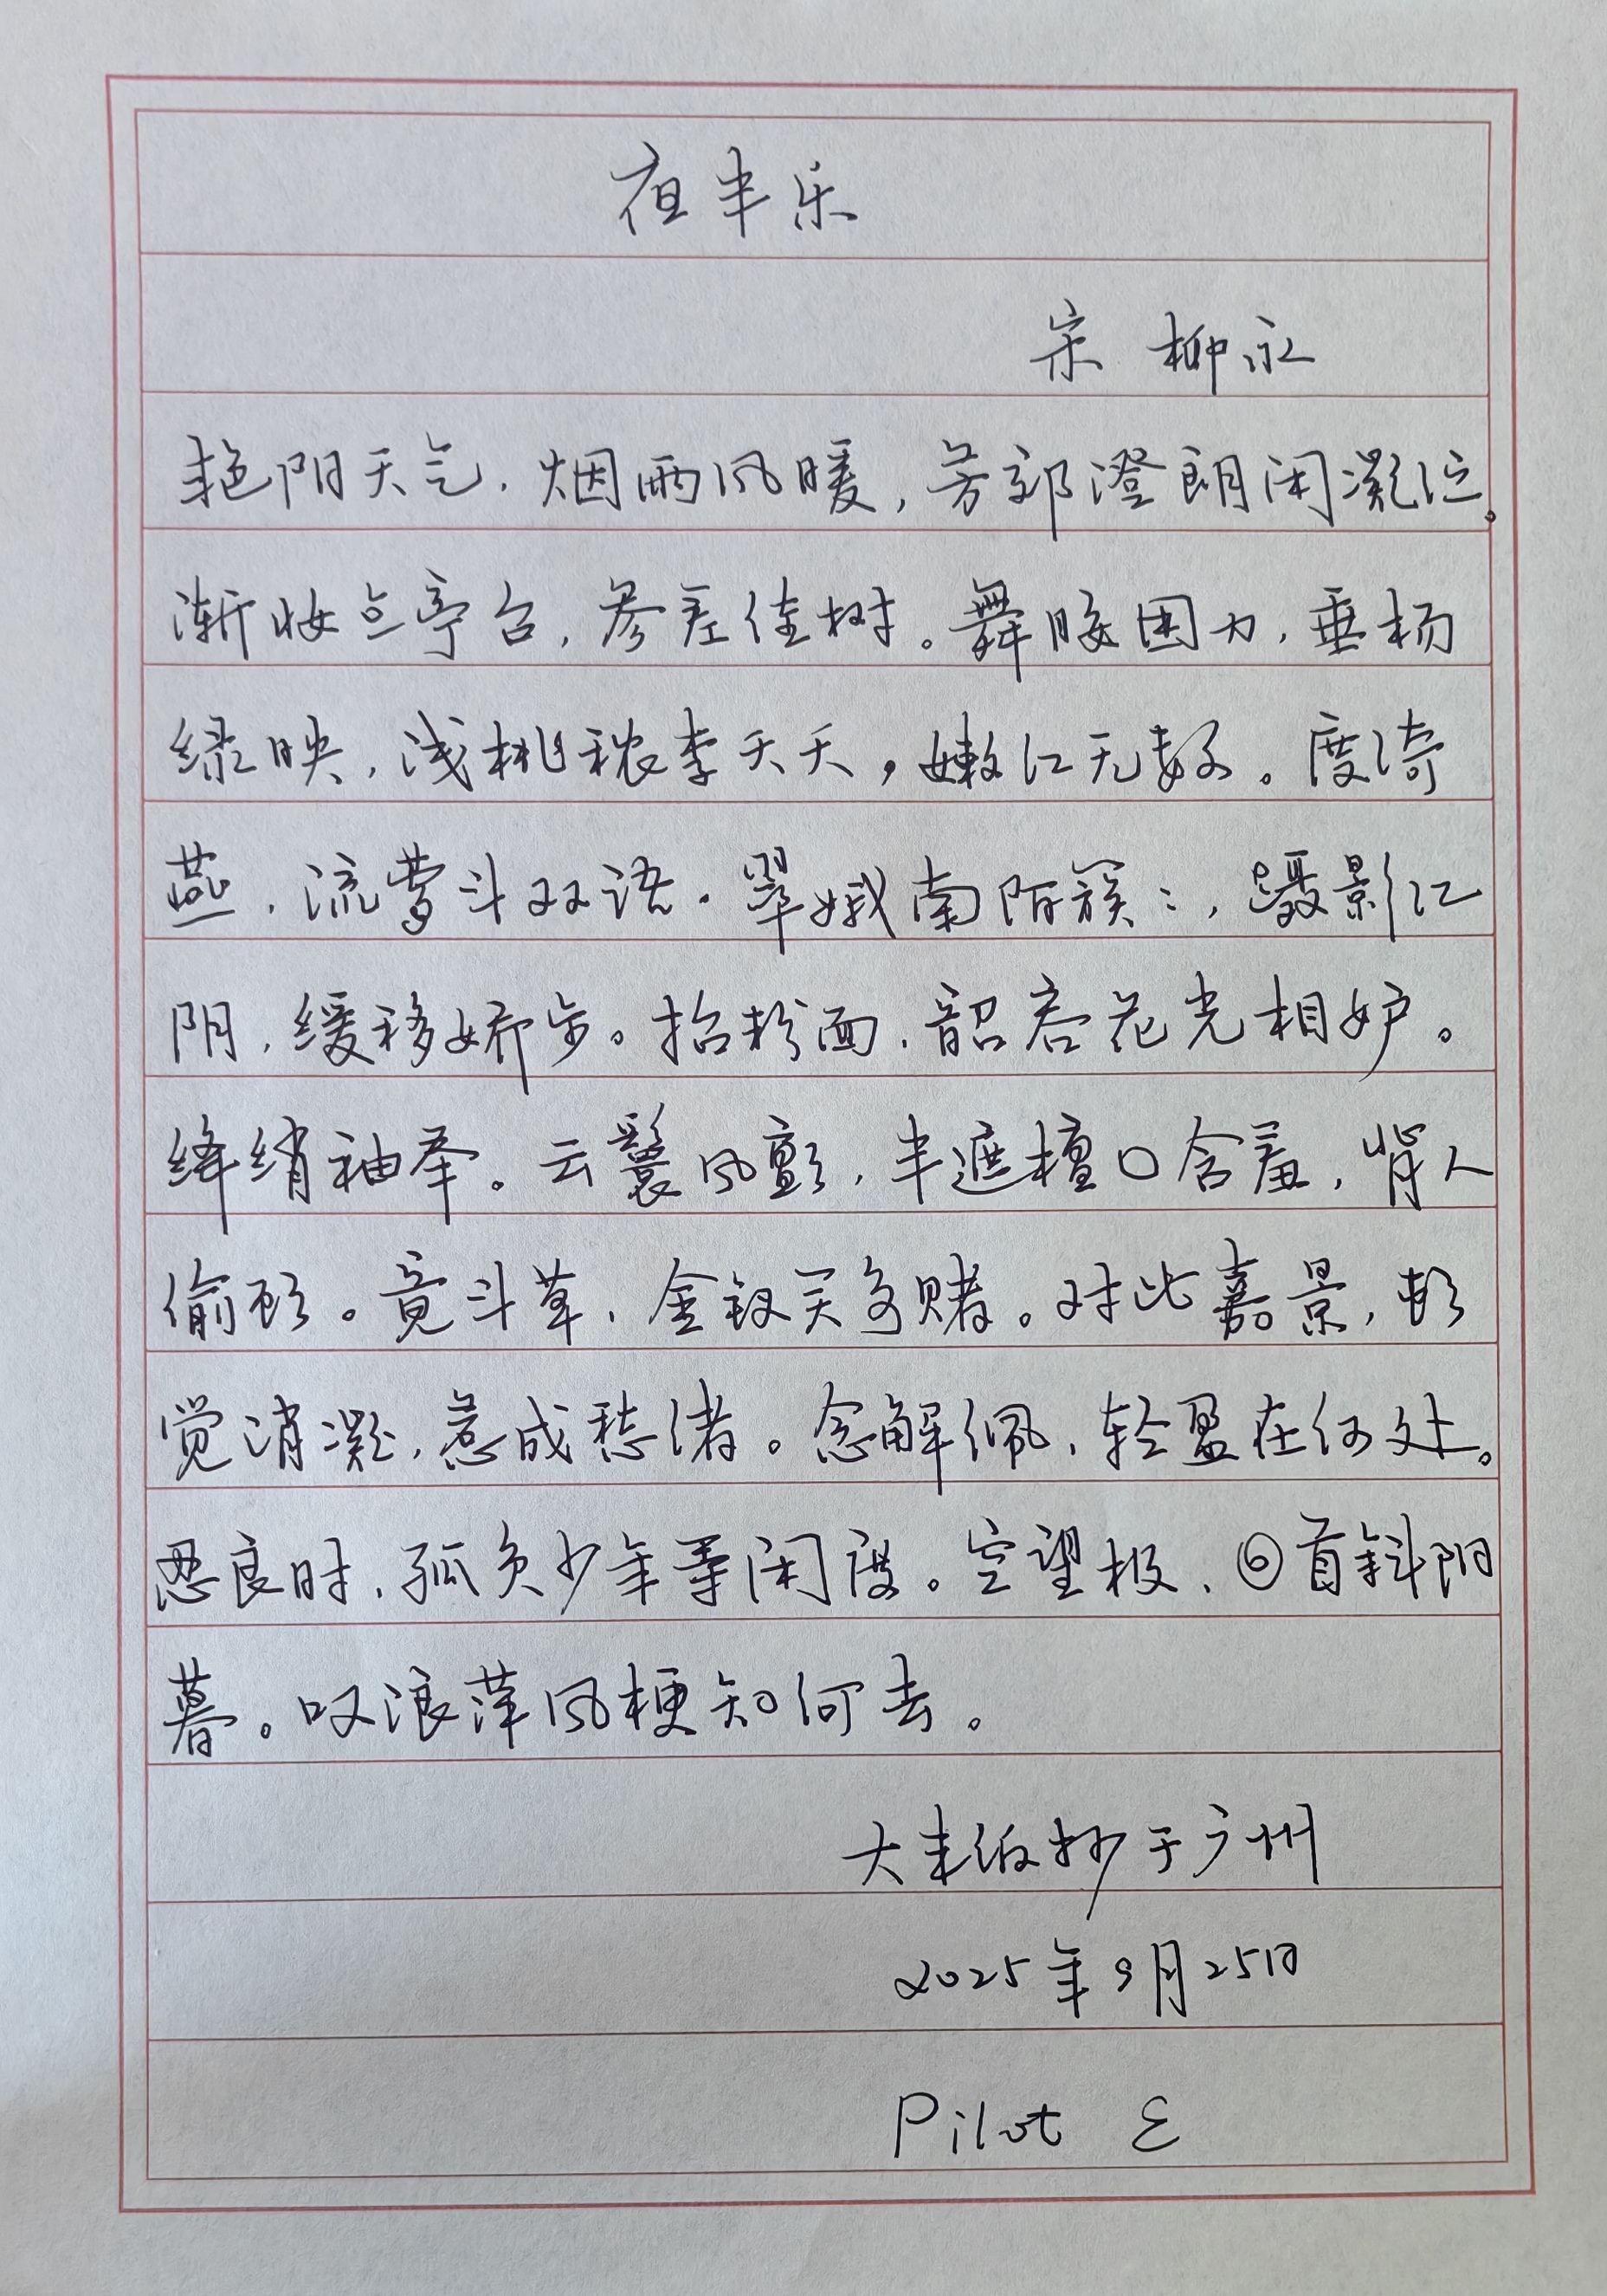 夜半乐
宋 柳永
艳阳天气,烟雨风暖,芳郊澄朗闲凝伫。
渐妆点亭台,参差佳树。舞腰困力,垂杨
绿映,浅桃秾李夭夭,嫩红无数。度绮
燕,流莺斗双语。翠娥南陌簇:,蹑影红
阴,缓移娇步。抬粉面,韶容花光相妒。
绛绡袖举。云鬟风颤,半遮檀口含羞,背人
偷顾。竟斗草,金钗笑争赌。对此嘉景,顿
觉消凝,惹成愁绪。念解佩,轻盈在何处。
忍良时,孤负少年等闲度。空望极,回首斜阳
暮。叹浪萍风梗知何去。
大丰伯抄于广州
2025年9月25日
Pilot